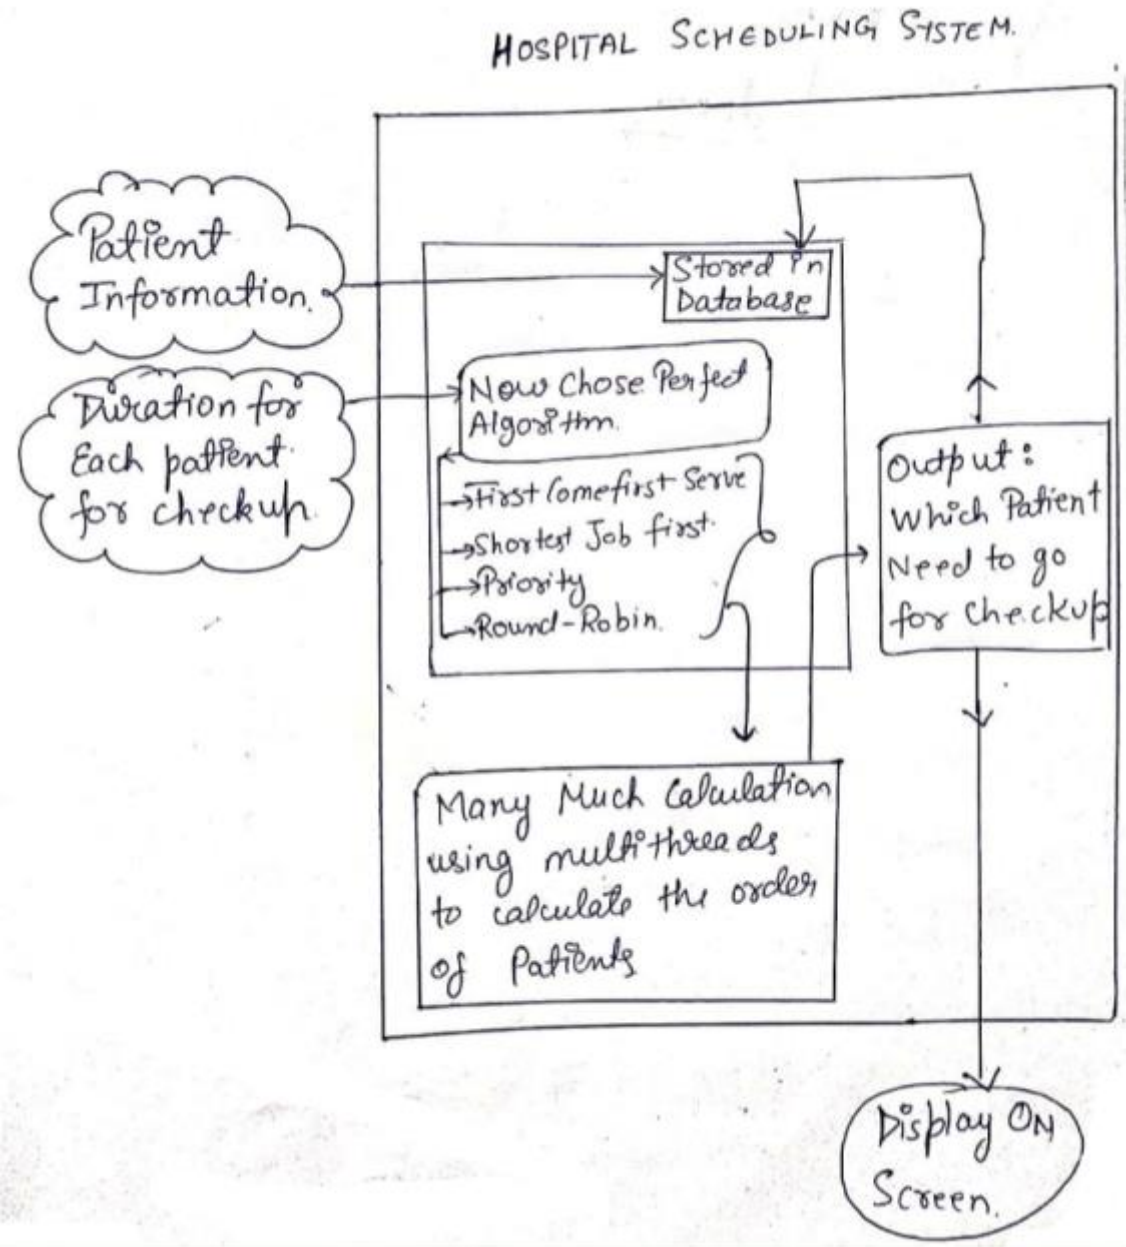 HOSPITAL SCHEDULING SYSTEM.
Patient
Information.
Stored in
Database
Duration for
Each patient.
for checkup.
Now Chose Perfect
Algorithm.
First Come first Serve
Shortest Job first.
Priority
Round-Robin.
Output:
Which Patient
Need to go
for checkup
Many Much Calculation
using multithreads
to calculate the order
of Patients
Display ON
Screen.